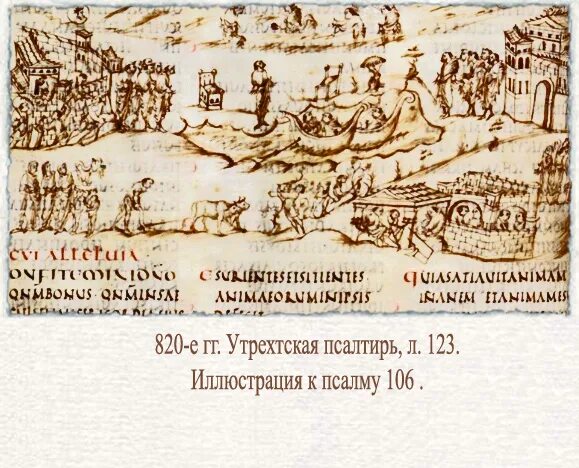 CVI ALLELUIA
ONFITEMINIDNO
QNMBONUS QNMINSAE
ESURIENTESETSITIENTES
ANIMAEORUMINIPSIS
QUIASATIAVITANIMAM
INANEM ETANIMAMES
820-е гг. Утрехтская псалтирь, л. 123.
Иллюстрация к псалму 106 .